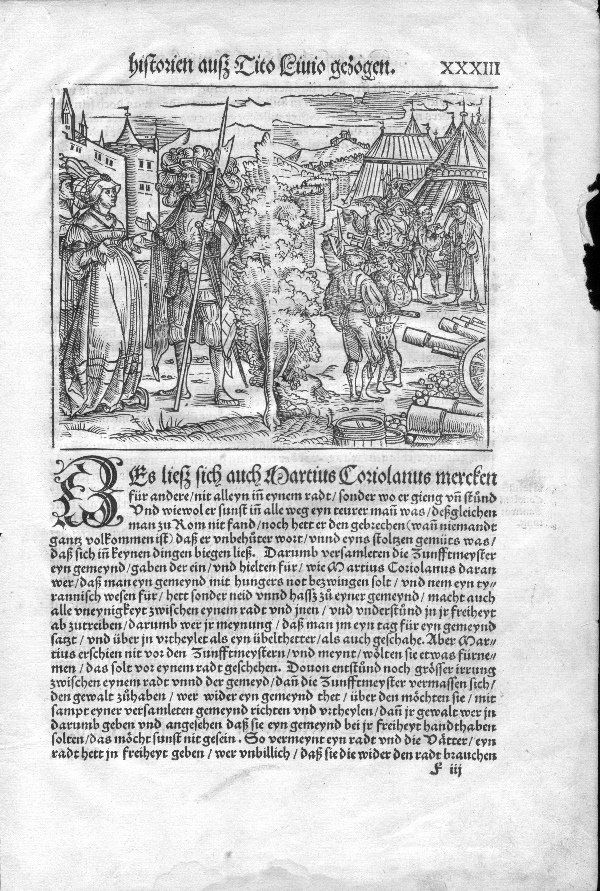 historien auß Tito Livio gezogen. XXXIII
ES ließ sich auch Martius Coriolanus mercken
für andere/nit alleyn iñ eynem radt/sonder wo er gieng vñ stůnd
Vnd wiewol er sunst iñ alle weg eyn teurer mañ was/deßgleichen
man zu Rom nit fand/noch hett er den gebrechen (wañ niemandt
gantz volkommen ist) daß er vnbehůter wort/vnnd eyns stoltzen gemüts was/
daß sich iñ keynen dingen biegen ließ. Darumb versamleten die Zunfftmeyster
eyn gemeynd/gaben der ein/vnd hielten für/wie Martius Coriolanus daran
wer/daß man eyn gemeynd mit hungers not bezwingen solt/vnd nem eyn ty-
rannisch wesen für/hett sonder neid vnnd hassz zů eyner gemeynd/macht auch
alle vneynigkeyt zwischen eynem radt vnd jnen/vnd vnderstůnd jn jr freiheyt
ab zutreiben/darumb wer jr meynung/daß man jm eyn tag für eyn gemeynd
satzt/vnd über jn vrtheylet als eyn übelthetter/als auch geschahe. Aber Mar-
tius erschien nit vor den Zunfftmeystern/vnd meynt/wölten sie etwas fürne-
men/das solt vor eynem radt geschehen. Douon entstůnd noch grösser irrung
zwischen dem eynem radt vnnd der gemeyd/dañ die Zunfftmeyster vermassen sich/
den gewalt zůhaben/wer wider eyn gemeynd thet/über den möchten sie/mit
sampt eyner versamleten gemeynd richten vnd vrtheylen/dañ jr gewalt wer jn
darumb geben vnd angesehen daß sie eyn gemeynd bei jr freiheyt handthaben
solten/das möcht sunst nit gesein. So vermeynt eyn radt vnd die Vätter/eyn
radt hett jn freiheyt geben/wer vnbillich/daß sie die wider den radt brauchen
F iij